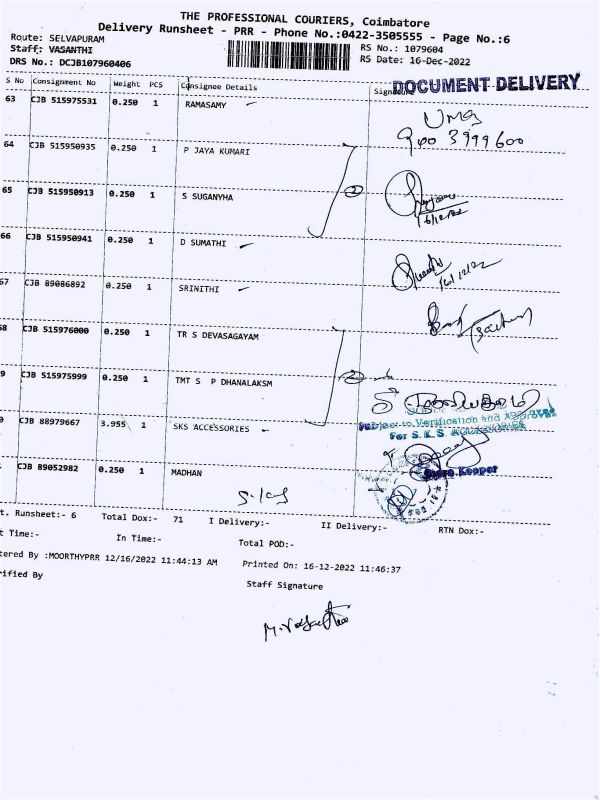 THE PROFESSIONAL COURIERS, Coimbatore
Delivery Runsheet - PRR - Phone No.:0422-3505555 - Page No.:6
Route: SELVAPURAM
Staff: VASANTHI
DRS No.: DCJB107960406
RS No.: 1079604
RS Date: 16-Dec-2022
S No Consignment No Weight PCS Consignee Details Signature
DOCUMENT DELIVERY
63 CJB 515975531 0.250 1 RAMASAMY
UMA
900 3999600
64 CJB 515950935 0.250 1 P JAYA KUMARI
65 CJB 515950913 0.250 1 S SUGANYHA
2
16/12/22
66 CJB 515950941 0.250 1 D SUMATHI
16/12/22
67 CJB 89086892 0.250 1 SRINITHI
68 CJB 515976000 0.250 1 TR S DEVASAGAYAM
9 CJB 515975999 0.250 1 TMT S P DHANALAKSM
2
Subject to Verification and
For S.K.S ACCESSORIES
CJB 88979667 3.955 1 SKS ACCESSORIES
Store Keeper
CJB 89052982 0.250 1 MADHAN
t. Runsheet:- 6 Total Dox:- 71 I Delivery:- II Delivery:- RTN Dox:-
t Time:- In Time:- Total POD:-
tered By :MOORTHYPRR 12/16/2022 11:44:13 AM Printed On: 16-12-2022 11:46:37
rified By Staff Signature